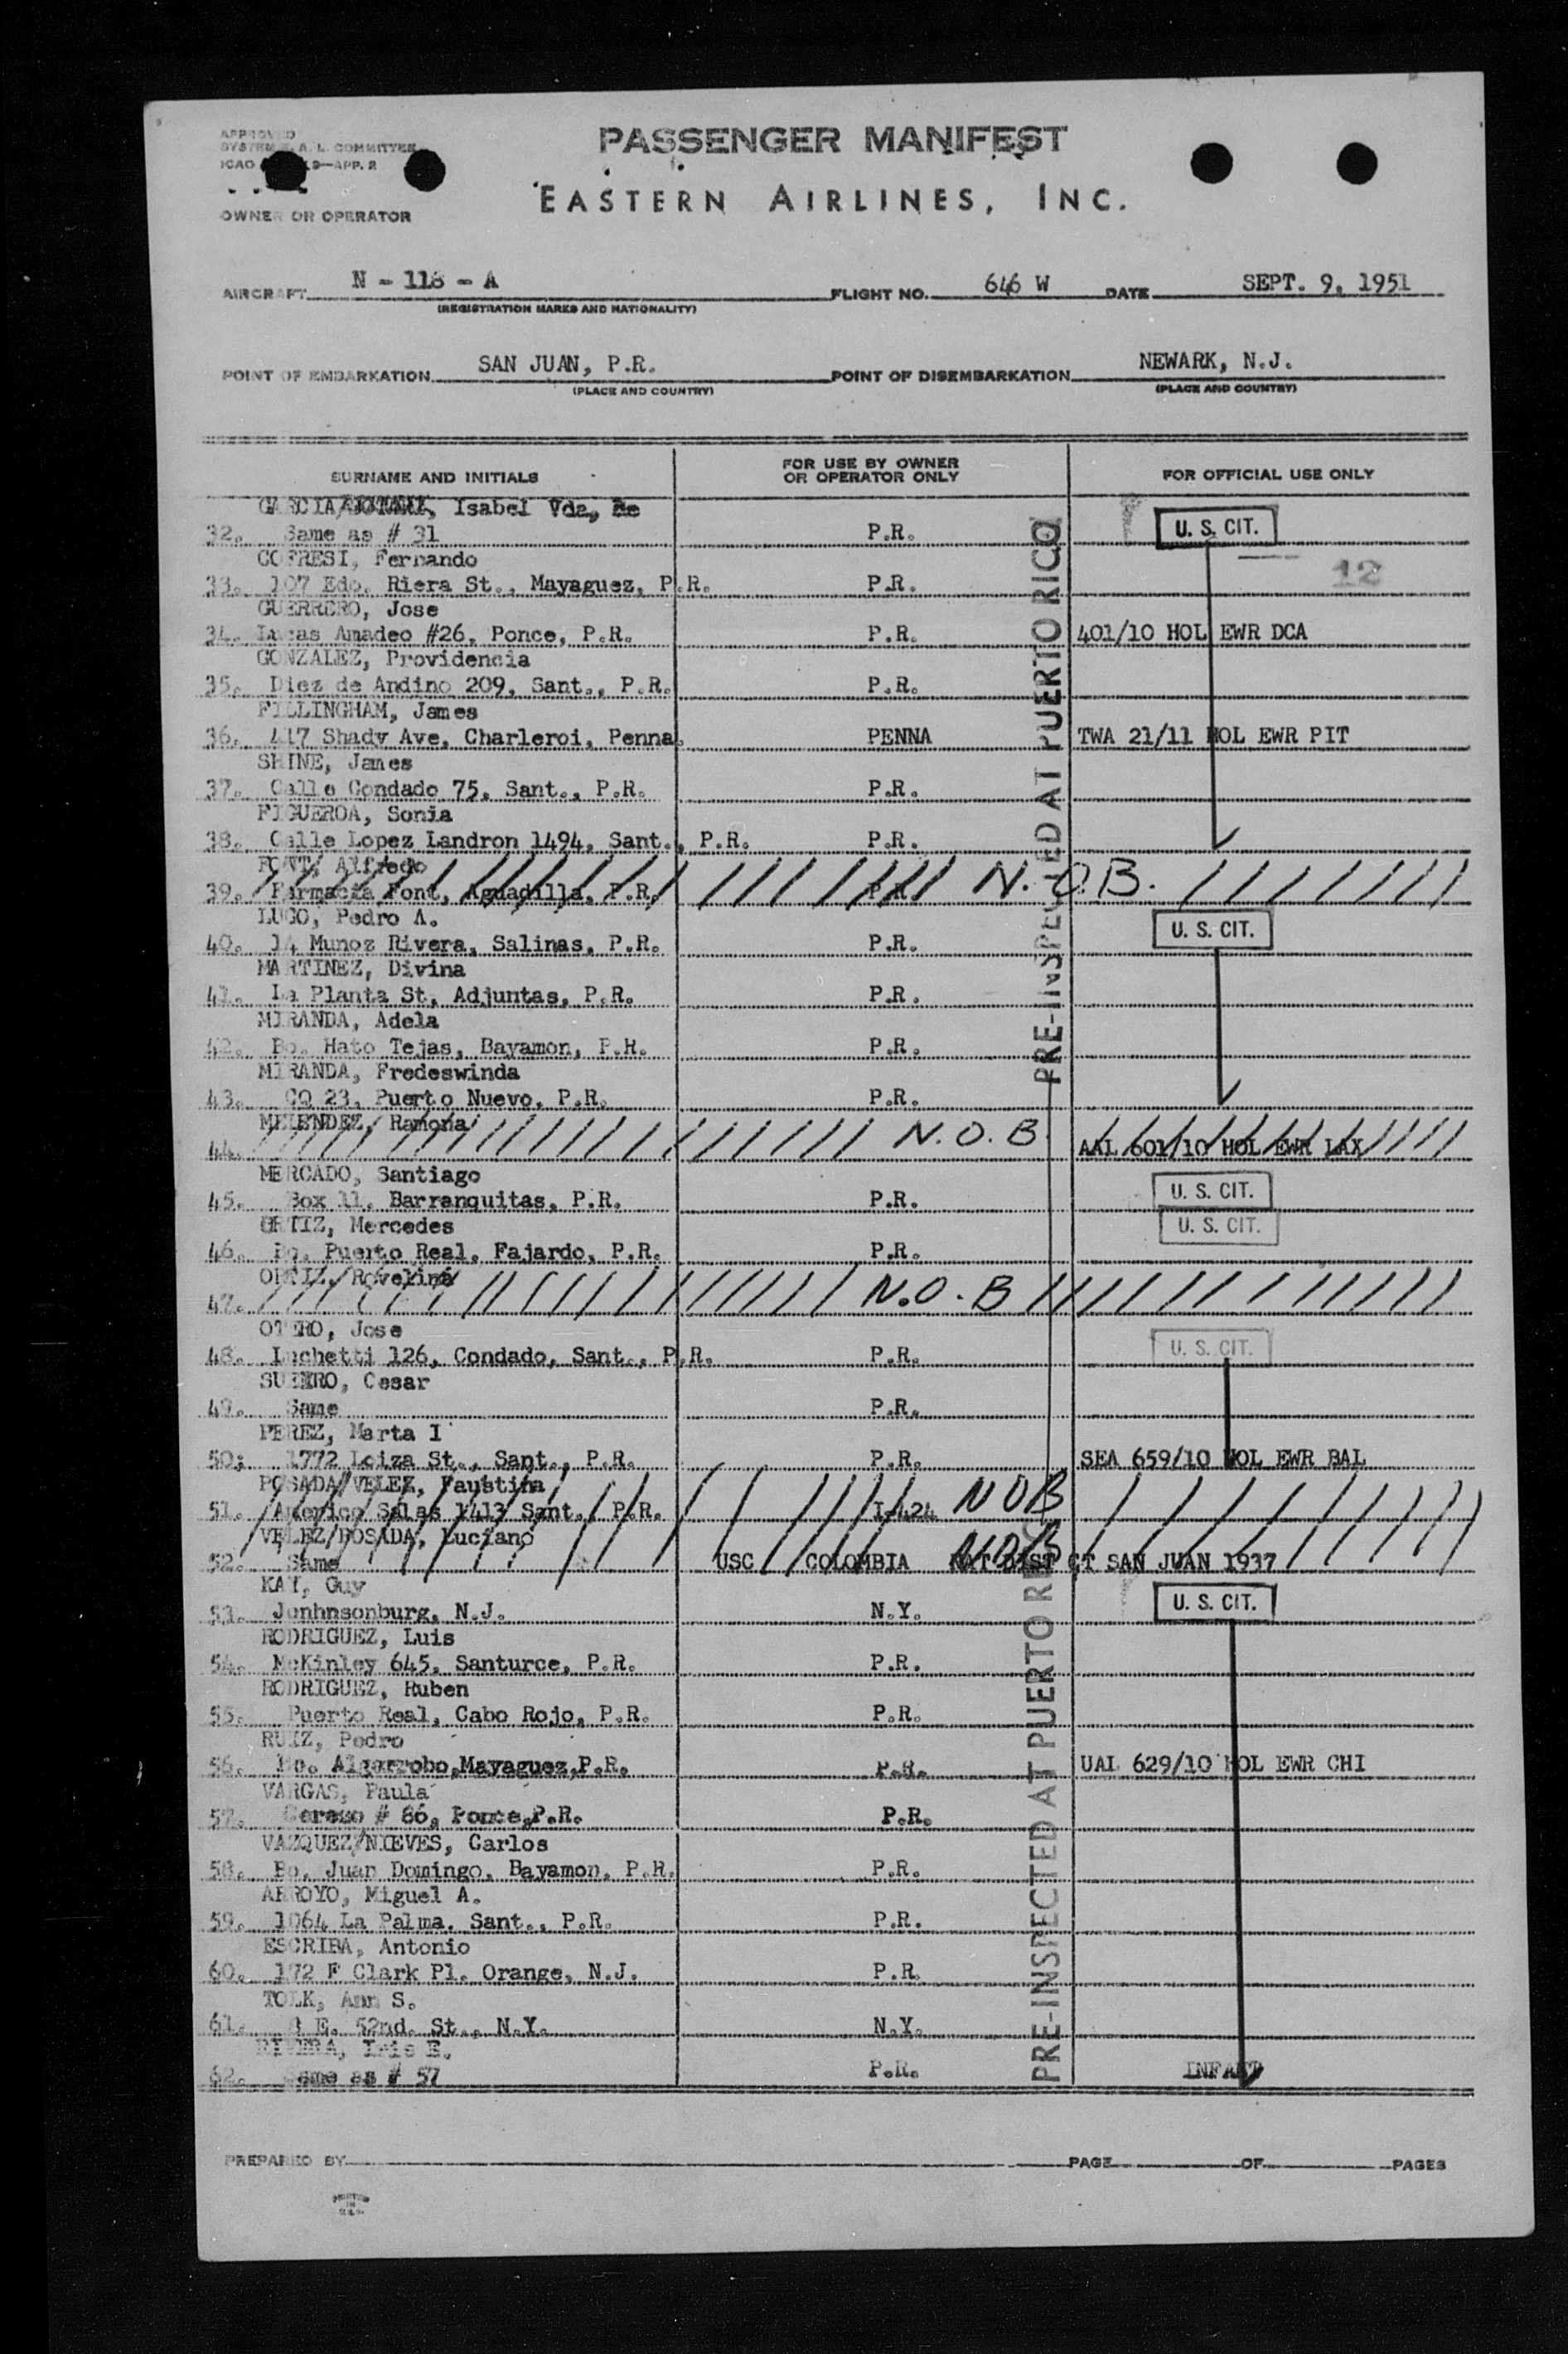 APPROVED
SYSTEM A. L. COMMITTEE
ICAO 9—APP. 2
OWNER OR OPERATOR
PASSENGER MANIFEST
EASTERN AIRLINES, INC.
AIRCRAFT N - 118 - A FLIGHT NO. 646 W DATE SEPT. 9, 1951
(REGISTRATION MARKS AND NATIONALITY)
POINT OF EMBARKATION SAN JUAN, P.R. POINT OF DISEMBARKATION NEWARK, N.J.
(PLACE AND COUNTRY) (PLACE AND COUNTRY)
SURNAME AND INITIALS FOR USE BY OWNER OR OPERATOR ONLY FOR OFFICIAL USE ONLY
GARCIA/ Isabel Vda, de
32. Same as # 31 P.R. U. S. CIT.
COFRESI, Fernando 12
33. 107 Edo. Riera St., Mayaguez, P.R. P.R.
GUERRERO, Jose
34. Lucas Amadeo #26, Ponce, P.R. P.R. 401/10 HOL EWR DCA
GONZALEZ, Providencia
35. Diez de Andino 209, Sant., P.R. P.R.
FILLINGHAM, James
36. 417 Shady Ave, Charleroi, Penna. PENNA TWA 21/11 HOL EWR PIT
SHINE, James
37. Calle Condado 75, Sant., P.R. P.R.
FIGUEROA, Sonia
38. Calle Lopez Landron 1494, Sant., P.R. P.R.
FONT, Alfredo
39. Farmacia Font, Aguadilla, P.R. P.R. N.O.B.
LUGO, Pedro A.
40. 14 Munoz Rivera, Salinas, P.R. P.R. U. S. CIT.
MARTINEZ, Divina
41. La Planta St, Adjuntas, P.R. P.R.
MIRANDA, Adela
42. Bo. Hato Tejas, Bayamon, P.R. P.R.
MIRANDA, Fredeswinda
43. CQ 23, Puerto Nuevo, P.R. P.R.
MELENDEZ, Ramona
44. N.O.B. AAL 601/10 HOL EWR LAX
MERCADO, Santiago
45. Box 11, Barranquitas, P.R. P.R. U. S. CIT.
ORTIZ, Mercedes U. S. CIT.
46. Bo. Puerto Real, Fajardo, P.R. P.R.
ORTIZ, Rovelina
47. N.O.B
OTERO, Jose
48. Luchetti 126, Condado, Sant., P.R. P.R. U. S. CIT.
SUEIRO, Cesar
49. Same P.R.
PEREZ, Marta I
50; 1772 Loiza St., Sant., P.R. P.R. SEA 659/10 HOL EWR BAL
POSADA/VELEZ, Faustina
51. Americo Salas 1413 Sant., P.R. I-424 NOB
VELEZ/POSADA, Luciano
52. Same USC COLOMBIA NAT DIST CT SAN JUAN 1937 NOB
KAY, Guy
53. Jonhnsonburg, N.J. N.Y. U. S. CIT.
RODRIGUEZ, Luis
54. McKinley 645, Santurce, P.R. P.R.
RODRIGUEZ, Ruben
55. Puerto Real, Cabo Rojo, P.R. P.R.
RUIZ, Pedro
56. Bo. Algarrobo,Mayaguez,P.R. P.R. UAL 629/10 HOL EWR CHI
VARGAS, Paula
57. Cerezo # 86, Ponce,P.R. P.R.
VAZQUEZ/NIEVES, Carlos
58. Bo. Juan Domingo, Bayamon, P.R. P.R.
ARROYO, Miguel A.
59. 1064 La Palma, Sant., P.R. P.R.
ESCRIBA, Antonio
60. 172 F Clark Pl. Orange, N.J. P.R.
TOLK, Ann S.
61. E. 52nd. St., N.Y. N.Y.
RIVERA, Iris E.
62. Same as # 57 P.R. INFANT
PRE-INSPECTED AT PUERTO RICO
PRE-INSPECTED AT PUERTO RICO
PREPARED BY PAGE OF PAGES
PRINTED
IN
U.S.A.